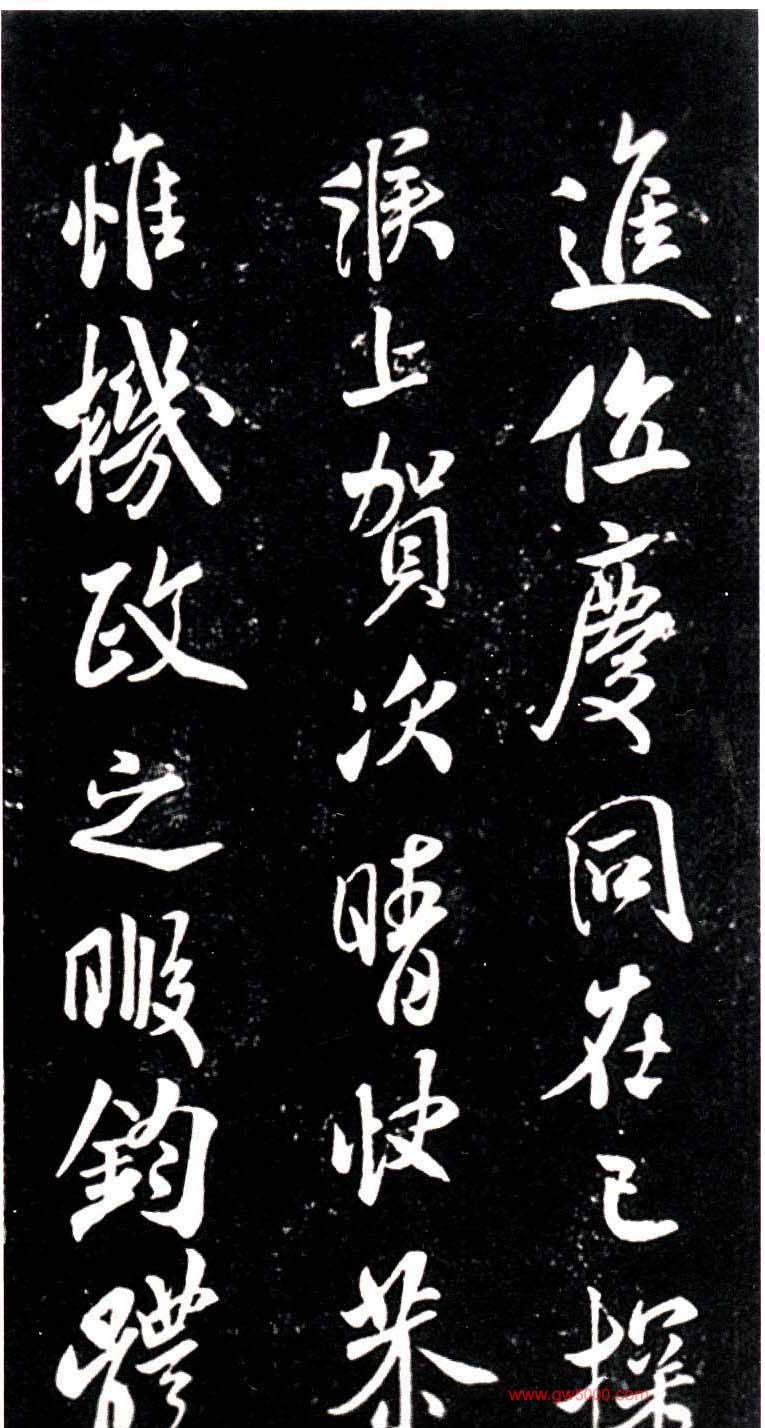 進位慶同在己探
候上賀次晴快恭
惟機政之暇鈞體
www.gw5000.com